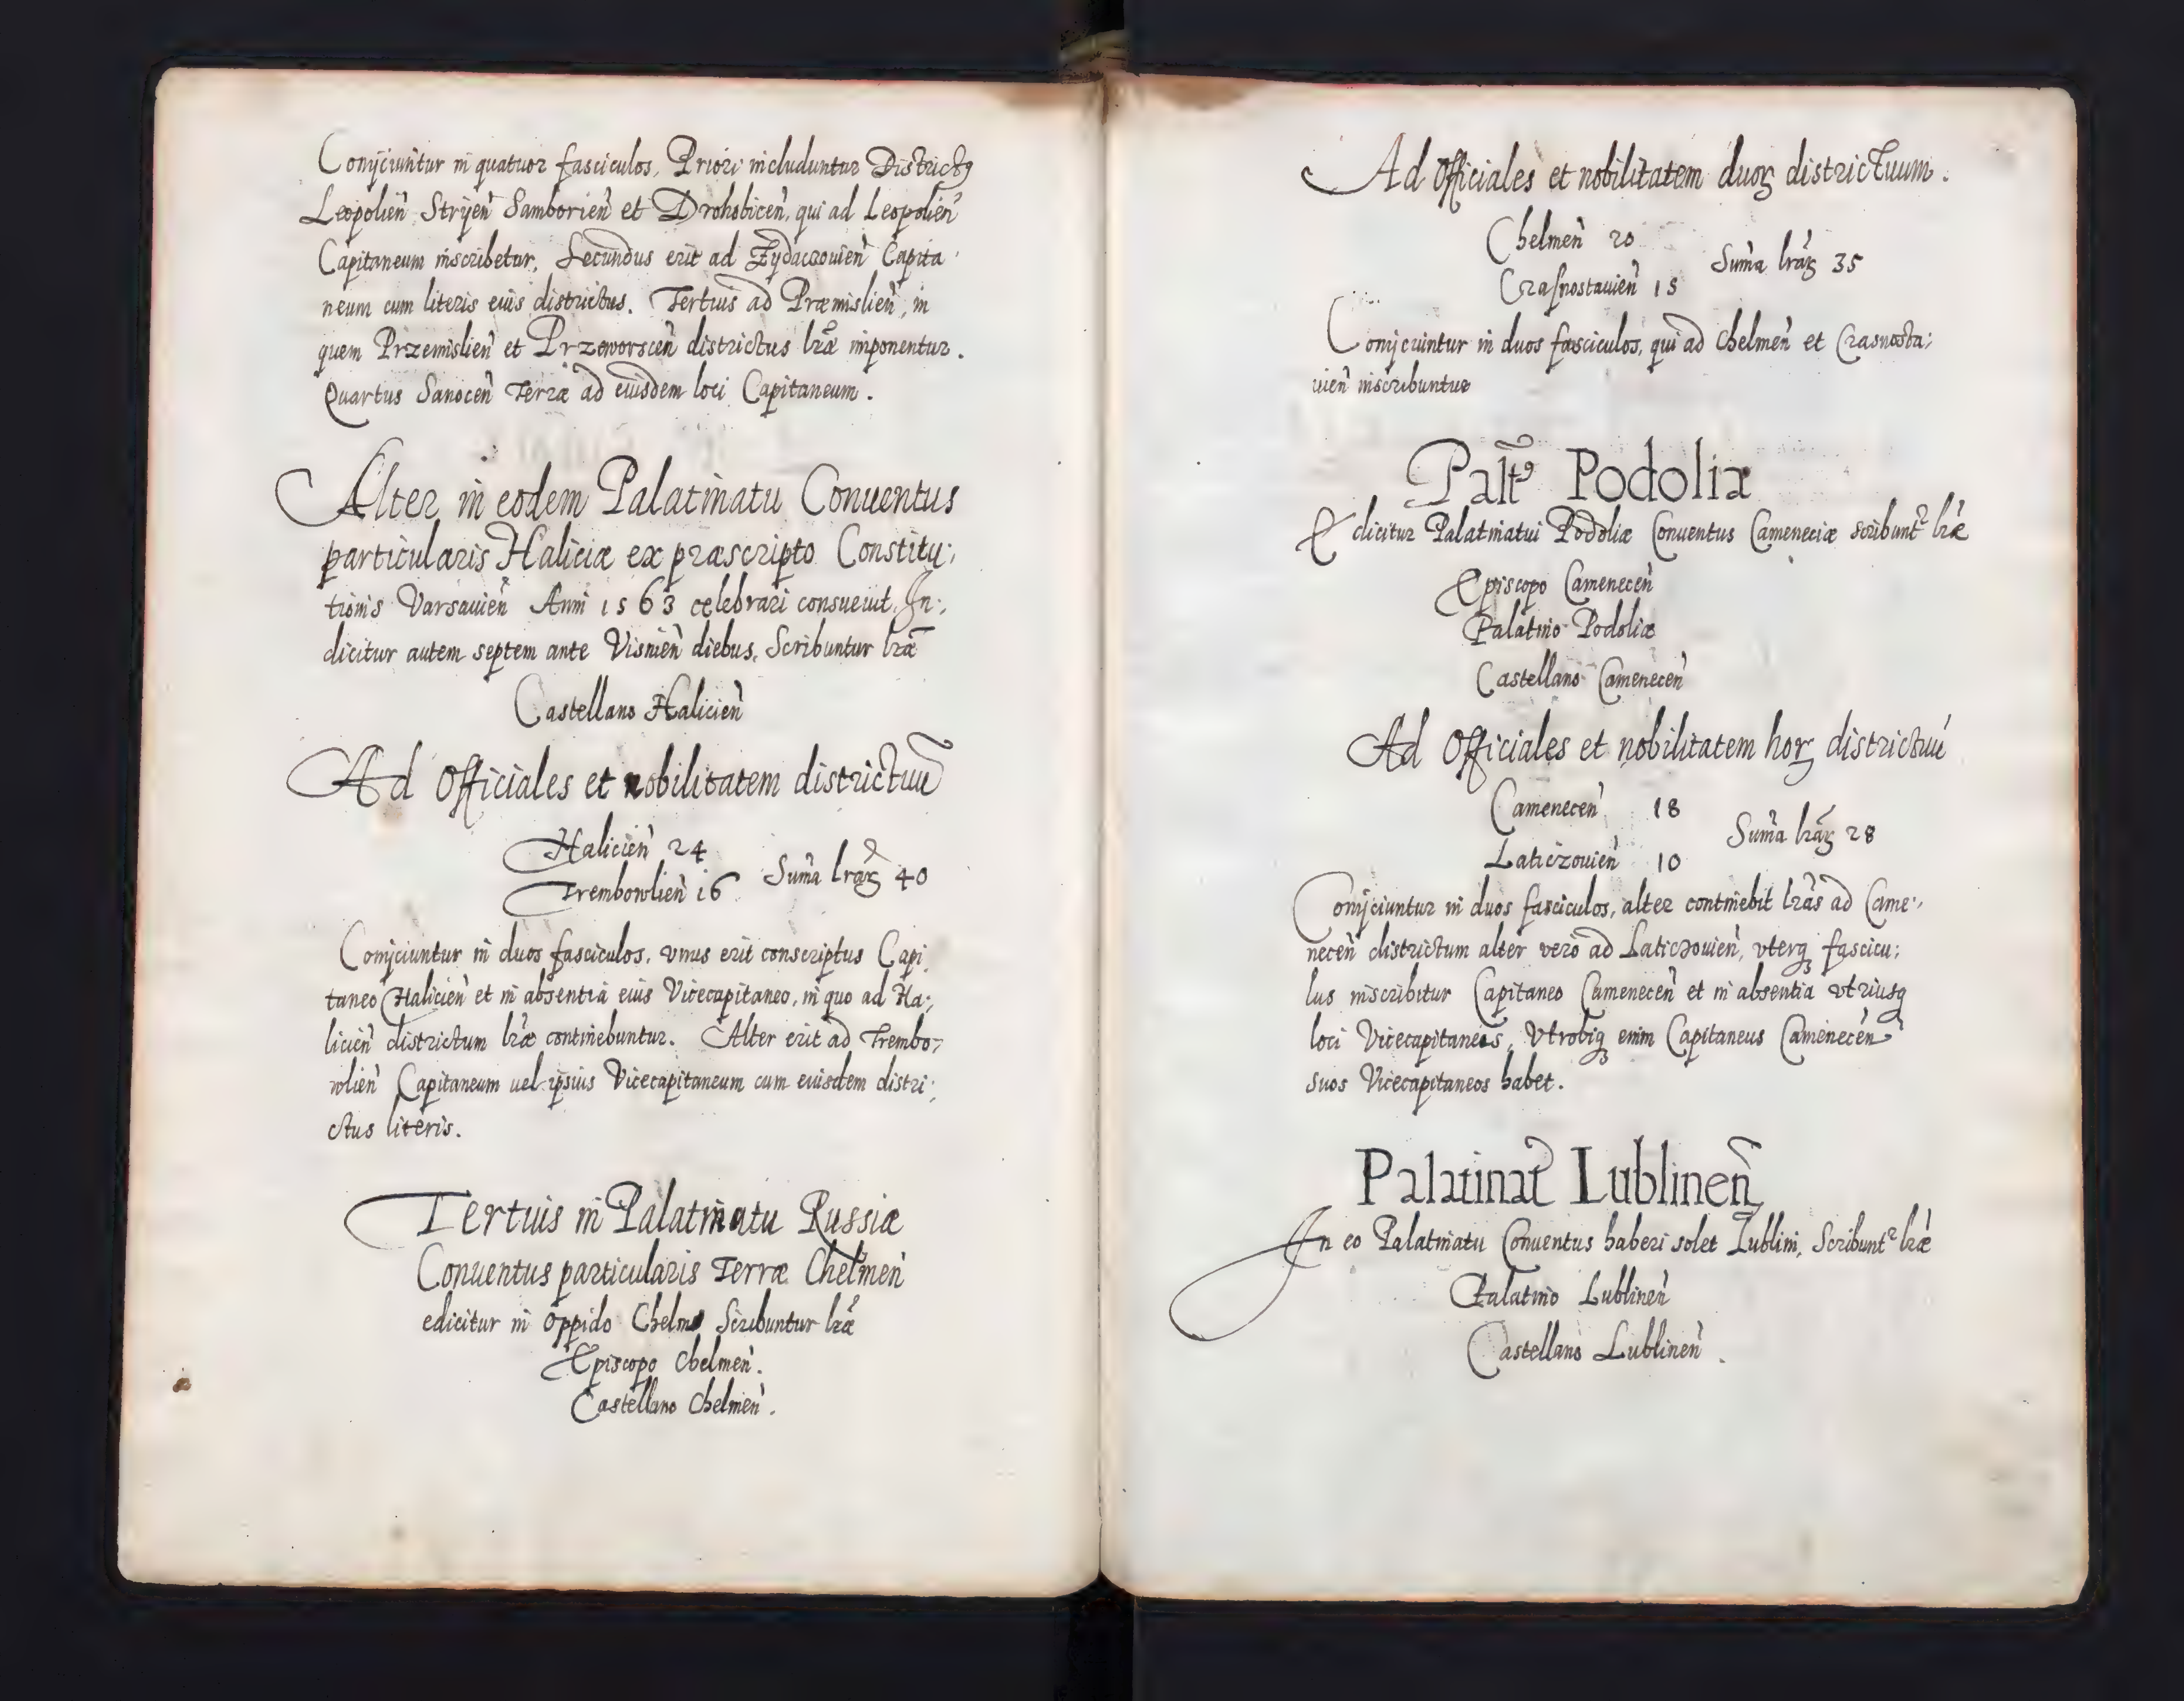 Conijciuntur in quatuor fasciculos, Priori includuntur Districtꝰ
Leopolien̄ Stryen̄ Samborien̄ et Drohobicen̄, qui ad Leopolien̄
Capitaneum inscribetur, Secundus erit ad Zydaczouien̄ Capita
neum cum literis eius districtus. Tertius ad Præmislien̄, in
quem Przemislien̄ et Przeworscen̄ districtus lr̄æ imponentur.
Quartus Sanocen̄ Terræ ad eiusdem loci Capitaneum.
Alter in eodem Palatinatu Conuentus
particularis Haliciæ ex præscripto Constitu:
tionis Varsauien̄ Anni 1563 celebrari consueuit. In:
dicitur autem septem ante Visnien̄ diebus. Scribuntur lr̄æ
Castellano Halicien̄
Ad Officiales et nobilitatem districtuū
Halicien̄ 24
Trembowlien̄ 16 Sum̄a lr̄aꝝ 40
Conijciuntur in duos fasciculos, vnus erit conscriptus Capi
taneo Halicien̄ et in absentia eius Vicecapitaneo, in quo ad Ha:
licien̄ districtum lr̄æ continebuntur. Alter erit ad Trembo:
wlien̄ Capitaneum uel ipsius Vicecapitaneum cum eiusdem distri:
ctus literis.
Tertius in Palatinatu Russiæ
Conuentus particularis Terræ Chelmen̄
edicitur in Oppido Chelm Scribuntur lr̄æ
Episcopo Chelmen̄.
Castellano Chelmen̄.
Ad Officiales et nobilitatem duoꝝ districtuum.
Chelmen̄ 20
Crasnostauien̄ 15 Sum̄a lr̄aꝝ 35
Conijciuntur in duos fasciculos, qui ad Chelmen̄ et Crasnosta:
uien̄ inscribuntur
Palt̄ꝰ Podoliæ
Edicitur Palatinatui Podoliæ Conuentus Cameneciæ scribunt᷑ lr̄æ
Episcopo Camenecen̄
Palatino Podoliæ
Castellano Camenecen̄
Ad Officiales et nobilitatem hoꝝ districtuū
Camenecen̄ 18
Laticzouien̄ 10 Sum̄a lr̄aꝝ 28
Conijciuntur in duos fasciculos, alter continebit lr̄as ad Came:
necen̄ districtum alter vero ad Laticzouien̄, vterqꝫ fascicu:
lus inscribitur Capitaneo Camenecen̄ et in absentia vtriusqꝫ
loci Vicecapitaneos, Vtrobiqꝫ enim Capitaneus Camenecen̄
suos Vicecapitaneos habet.
Palatinat᷑ Lublinen̄
In eo Palatinatu Conuentus haberi solet Lublini, Scribunt᷑ lr̄æ
Palatino Lublinen̄
Castellano Lublinen̄.